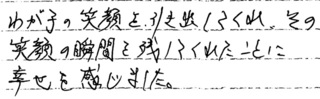 わが子の笑顔を引き出してくれ、その
笑顔の瞬間を残してくれたことに
幸せを感じました。